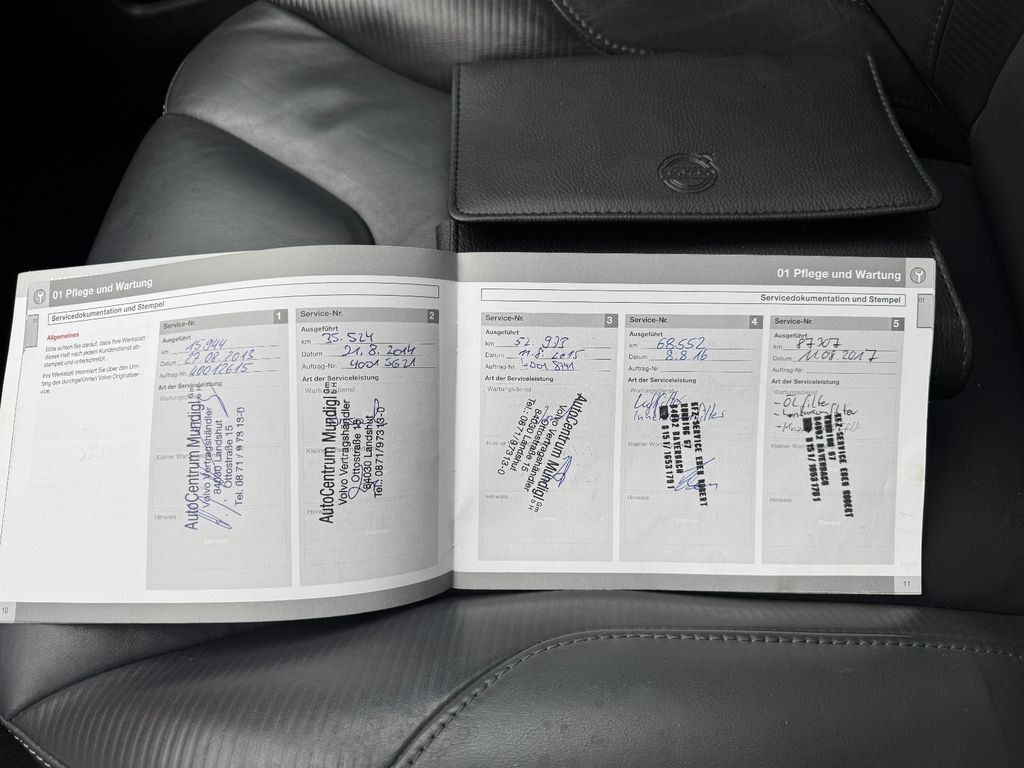 01 Pflege und Wartung
Servicedokumentation und Stempel
Allgemeines
Bitte achten Sie darauf, dass Ihre Werkstatt
dieses Heft nach jedem Kundendienst ab-
stempelt und unterschreibt.
Ihre Werkstatt informiert Sie über den Um-
fang des durchgeführten Volvo Originalser-
vice.
Service-Nr. 1
Ausgeführt
km 15.944
Datum 22.08.2013
Auftrag-Nr. 40012615
Art der Serviceleistung
Wartungsdienst
AutoCentrum Mundigl GmbH
Volvo Vertragshändler
Ottostraße 15
84030 Landshut
Tel. 0871/9 73 13-0
Hinweis
Stempel
10
Service-Nr. 2
Ausgeführt
km 35.524
Datum 21.8.2014
Auftrag-Nr. 4001 5621
Art der Serviceleistung
AutoCentrum Mundigl GmbH
Volvo Vertragshändler
Ottostraße 15
84030 Landshut
Tel. 0871/973 13-0
Hinweis
Stempel
01 Pflege und Wartung
Servicedokumentation und Stempel
Service-Nr. 3
Ausgeführt
km 52.933
Datum 11.8.2015
Auftrag-Nr. 4001 8741
Art der Serviceleistung
Wartungsdienst
AutoCentrum Mundigl GmbH
Volvo Vertragshändler
Ottostraße 15
84030 Landshut
Tel.: 0871/97313-0
Hinweis
Stempel
Service-Nr. 4
Ausgeführt
km 68.552
Datum 8.8.16
Auftrag-Nr.
Art der Serviceleistung
Wartungsdienst
Luftfilter
KFZ-SERVICE EBER ROBERT
84092 BAYERBACH
0151/10531791
Hinweis
Stempel
Service-Nr. 5
Ausgeführt
km 87307
Datum 11.08.2017
Auftrag-Nr.
Art der Serviceleistung
Wartungsdienst
- Öl filter
KFZ-SERVICE EBER ROBERT
84092 BAYERBACH
0151/10531791
Hinweis
Stempel
11